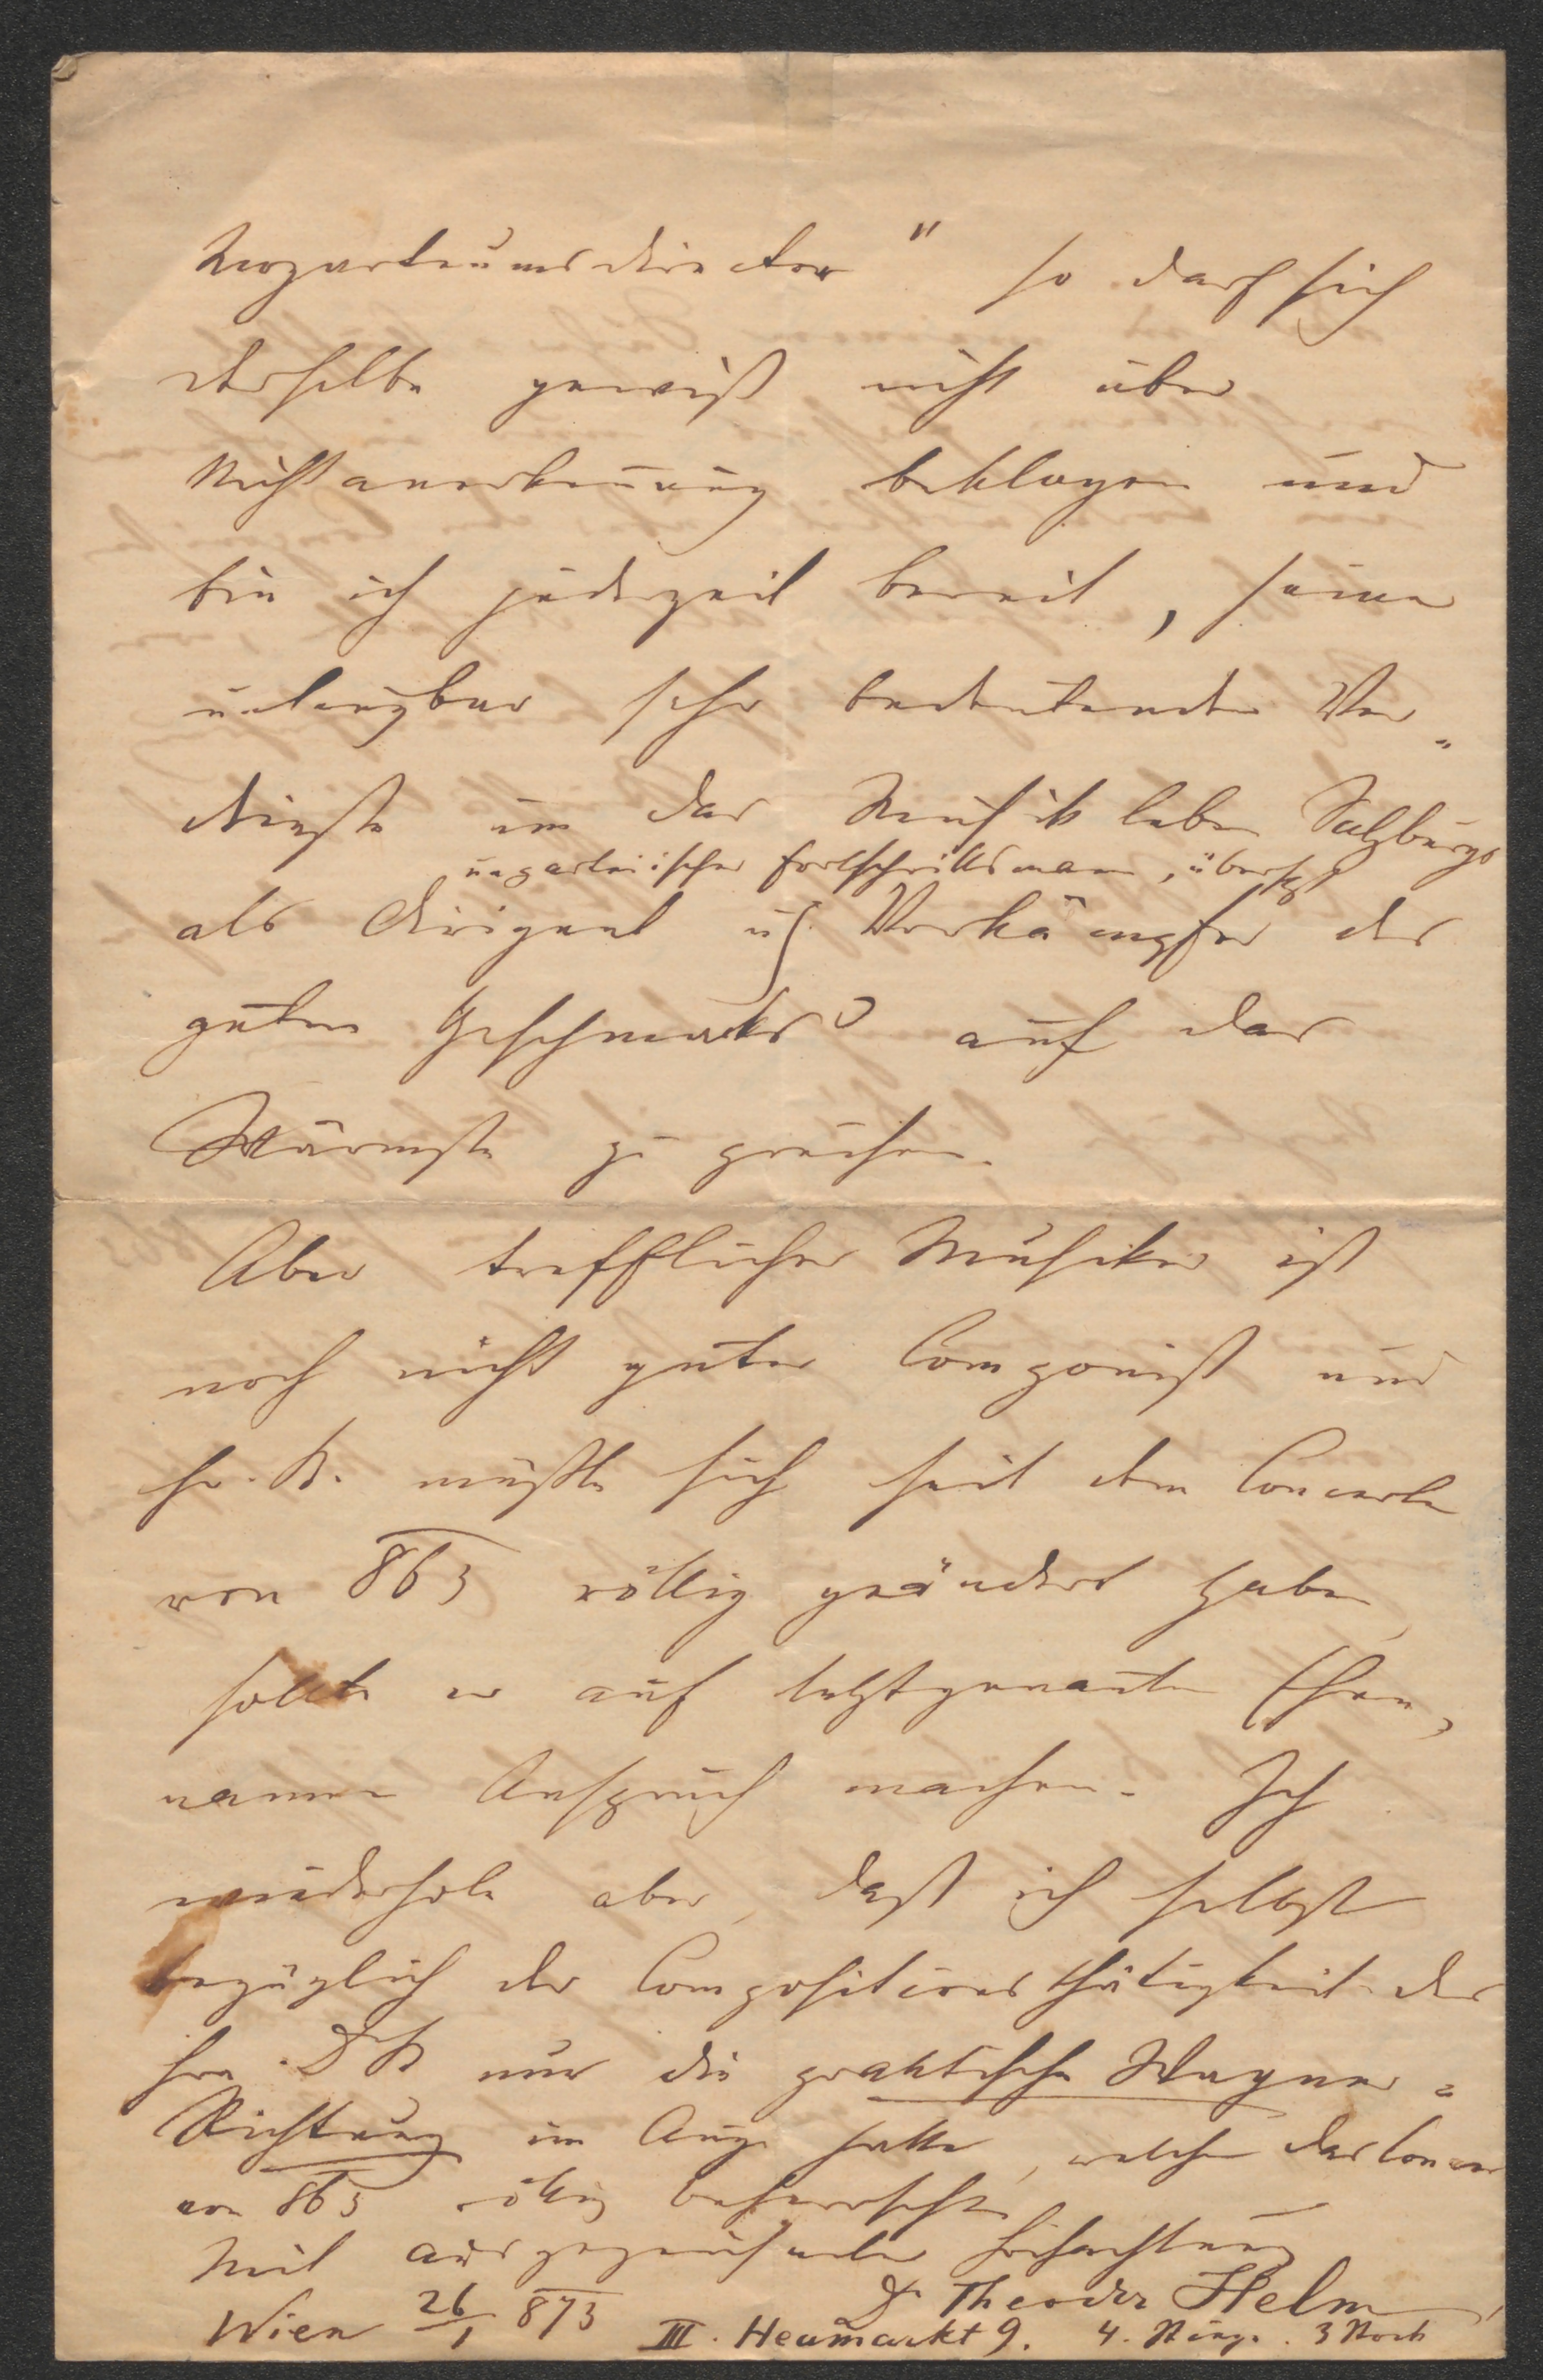 Mozarteumsdirector" so darf sich
derselbe gewiß nicht über
Nichtanerkeñung beklagen und
bin ich jederzeit bereit, seine
unleugbar sehr bedeutenden Ver=
dienste um das Musikleben Salzburgs
unparteiischer Fortschrittsmann, überhpt
als Dirigent u Vorkämpfer des
guten Geschmacks auf das
Wärmste zu preisen.
Aber trefflicher Musiker ist
noch nicht guter Componist und
Hr. B. müßte sich seit dem Concerte
von 863 völlig geändert haben,
sollte er auf letztgenañten Ehren=
namen Anspruch machen. Ich
wiederhole aber, daß ich selbst
bezüglich der Compositionsthätigkeit des
Hrn. D B nur die praktische Wagner=
Richtung im Auge hatte, welche das Concert
von 863 völlig beherrschte.
Mit ausgezeichneter Hochachtung
Dr Theodor Helm
Wien 26/1 873
III. Heumarkt 9. 4. Stiege. 3 Stock